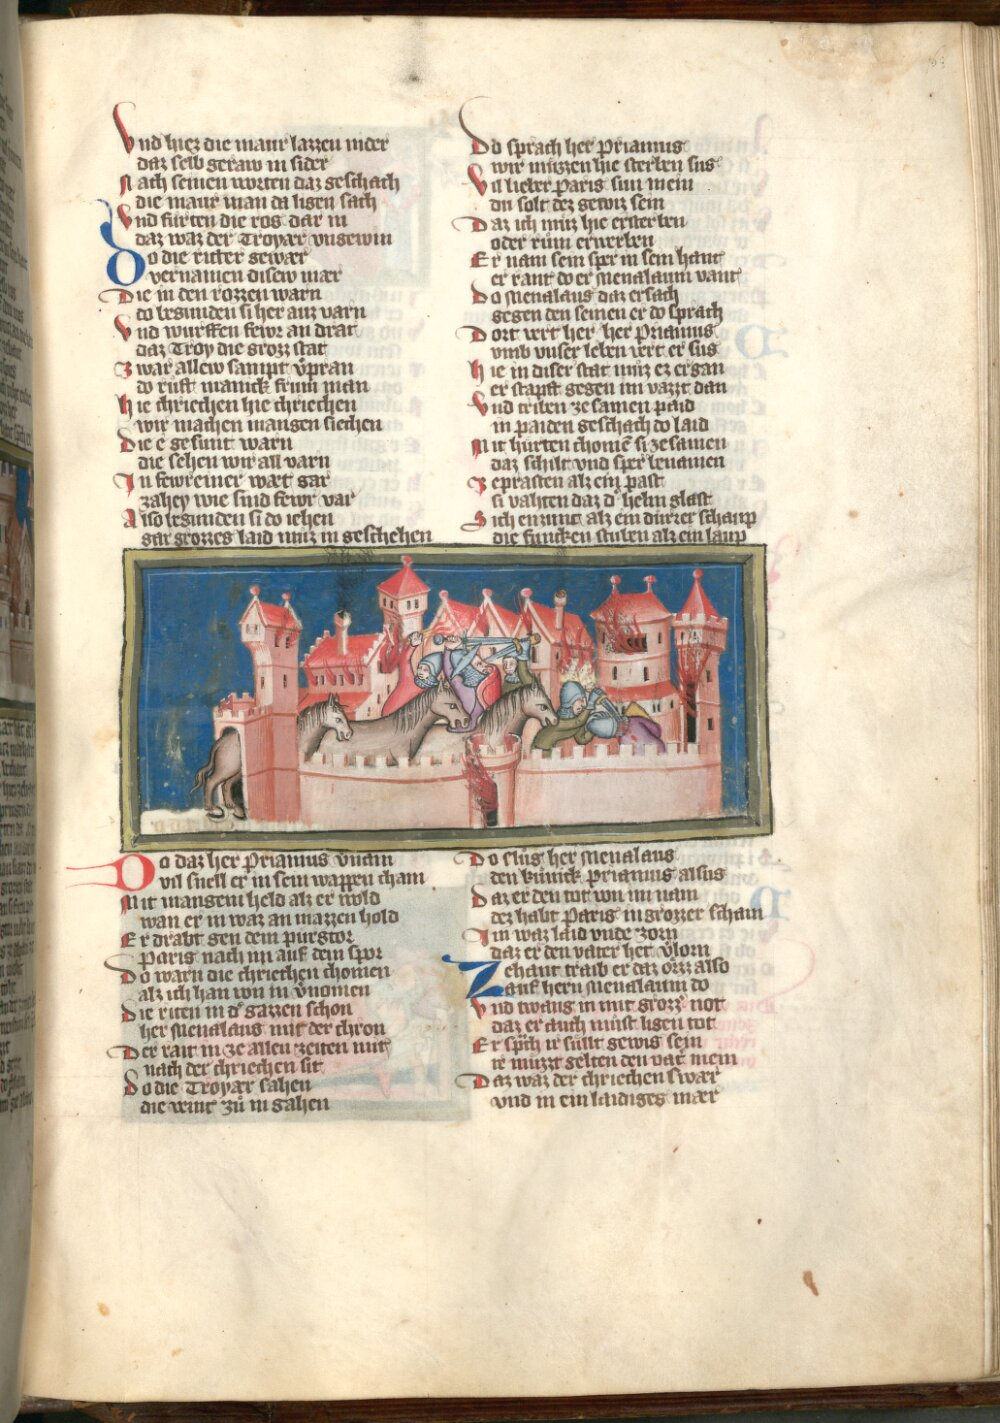 Vnd hiez die maur lazzen nider
daz selb geraw in sider
Nach seinen worten daz geschach
die maur man da ligen sach
Vnd fürten die ros dar in
daz waz der Troyær vngewin
Do die ritter gewær
vernamen disew mær
Die in den rozzen warn
do begunden si her auz varn
Vnd wurffen fewr an drat
daz Troy die grozz stat
Zwar allew sampt v̆pran
do rüft manick frum man
hie chriechen hie chriechen
wir machen mangen siechen
Die e gesunt warn
die sehen wir all varn
In fewreiner wæt gar
zahey wie sind fewr var
Also begunden si do iehen
gar grozzes laid muz in geschehen
Do daz her Priamus v̆nam
vil snell er in sein wappen cham
Mit mangem held alz er wold
wan er in waz an mazzen hold
Er drabt gen dem purgtor
Paris nach im auf dem spor
Do warn die chriechen chomen
alz ich han von in v̆nomen
Die riten in d' gazzen schon
her Menalaus mit der chron
Der rait in ze allen zeiten mit
nach der chriechen sit
Do die Troyær sahen
die veint zů in gahen
Do sprach her Priamus
wir müzzen hie sterben sus
Vil lieber Paris sun mein
du solt dez gewiz sein
Daz ich muz hie ersterben
oder rům erwerben
Er nam sein sper in sein hant
er rant do er Menalaum vant
Do Menalaus daz ersach
gegen den seinen er do sprach
Dort vert her her Priamus
vmb vnser leben vert er sus
hie in diser stat muz ez ergan
er stapft gegen im vazzt dan
Vnd triben ze samen paid
in paiden geschach do laid
Mit hurten chomē si ze samen
daz schilt vnd sper benamen
Zeprasten alz ein past
si valiten daz d' helm glast
Sich enzunt alz ein dürrer schaup
die funcken stuben alz ein laup
Do slůg her Menalaus
den künick Priamus alsus
Daz er den tot von im nam
dez habt Paris in grozzer scham
Im waz laid vnde zorn
daz er den vater het v̆lorn
Zehant traib er daz orz also
auf hern Menalaum do
Vnd twang in mit grozz' not
daz er auch must ligen tot
Er sp̄ch ir sullt gewis sein
ir müzzt gelten den vat' mein
Daz waz der chriechen swær
vnd in ein laidiges mær